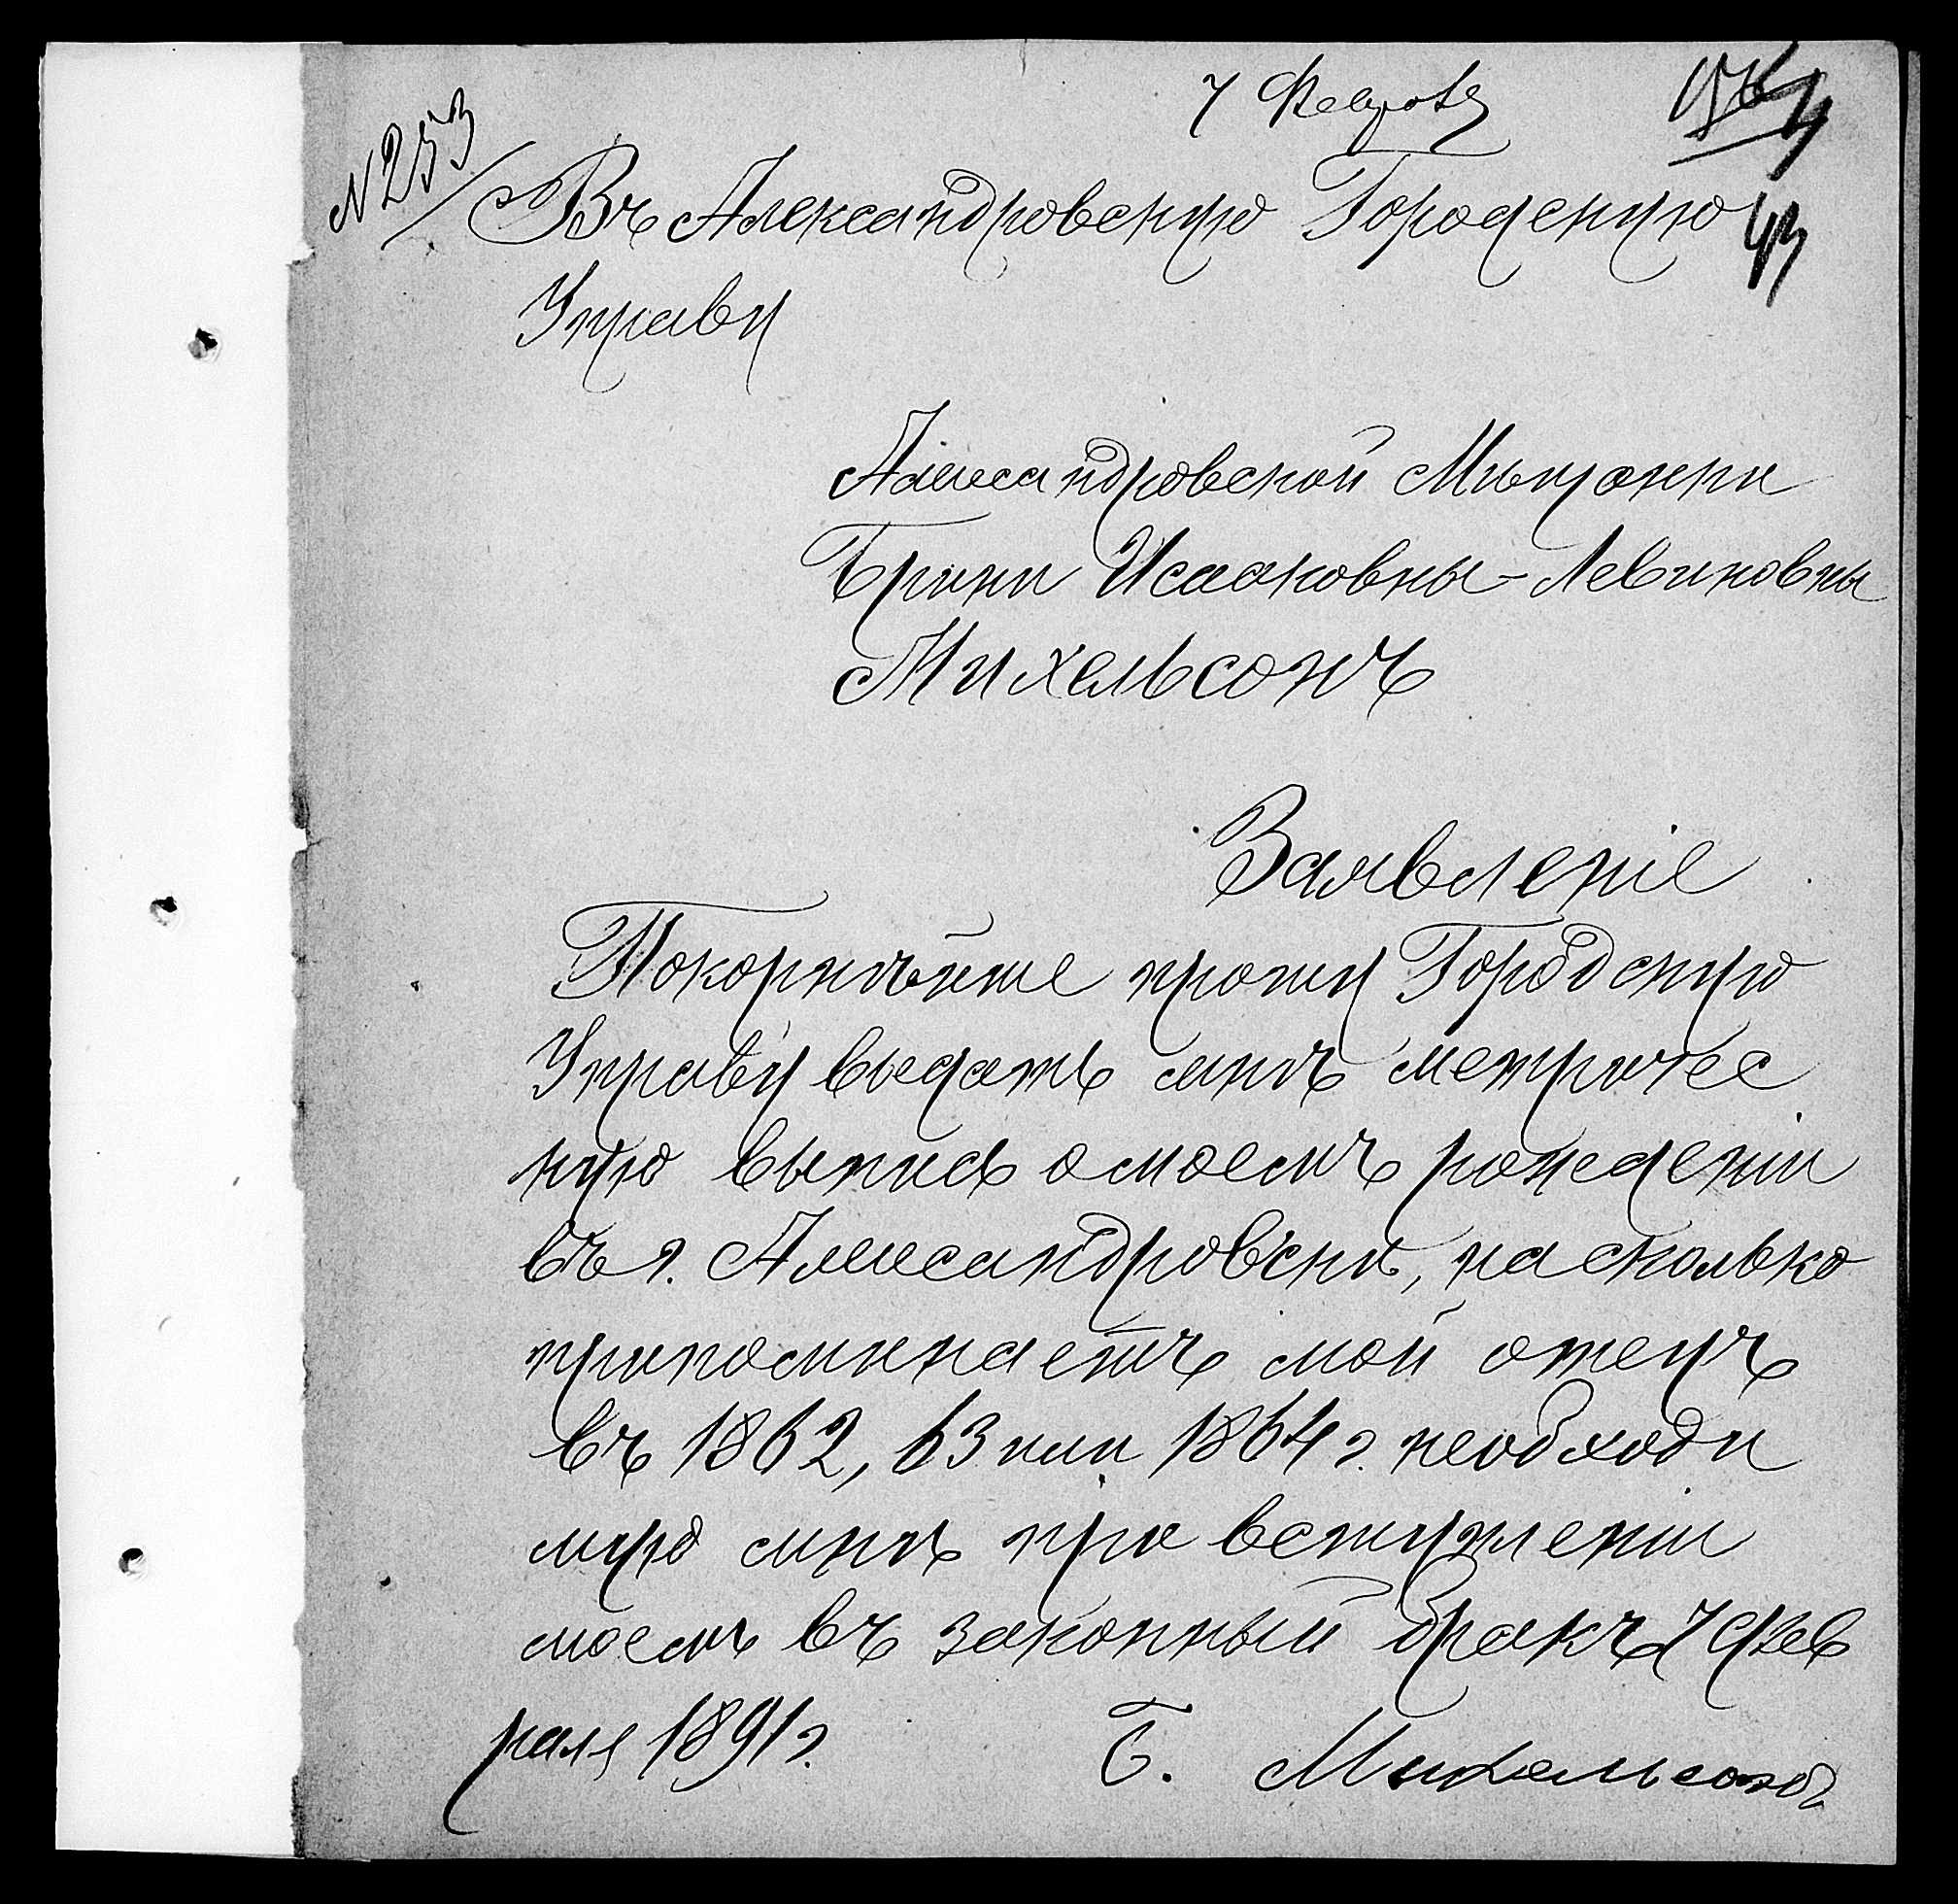 7 Февраля
44
№ 253
Въ Александровскую Городскую
43
Управу
Александровской Мѣщанки
Брини Исааковны-Левиновны
Михельсонъ
Заявленіе
Покорнѣйше прошу Городскую
Управу выдать мнѣ метричес
кую выпись о моемъ рожденіи
въ г. Александровскѣ, на сколько
припоминаетъ мой отецъ
въ 1862, 63 или 1864 г. необходи
мую мнѣ при вступленіи
моемъ въ законный бракъ 7 Фев
раля 1891 г.
Б. Михельсонъ